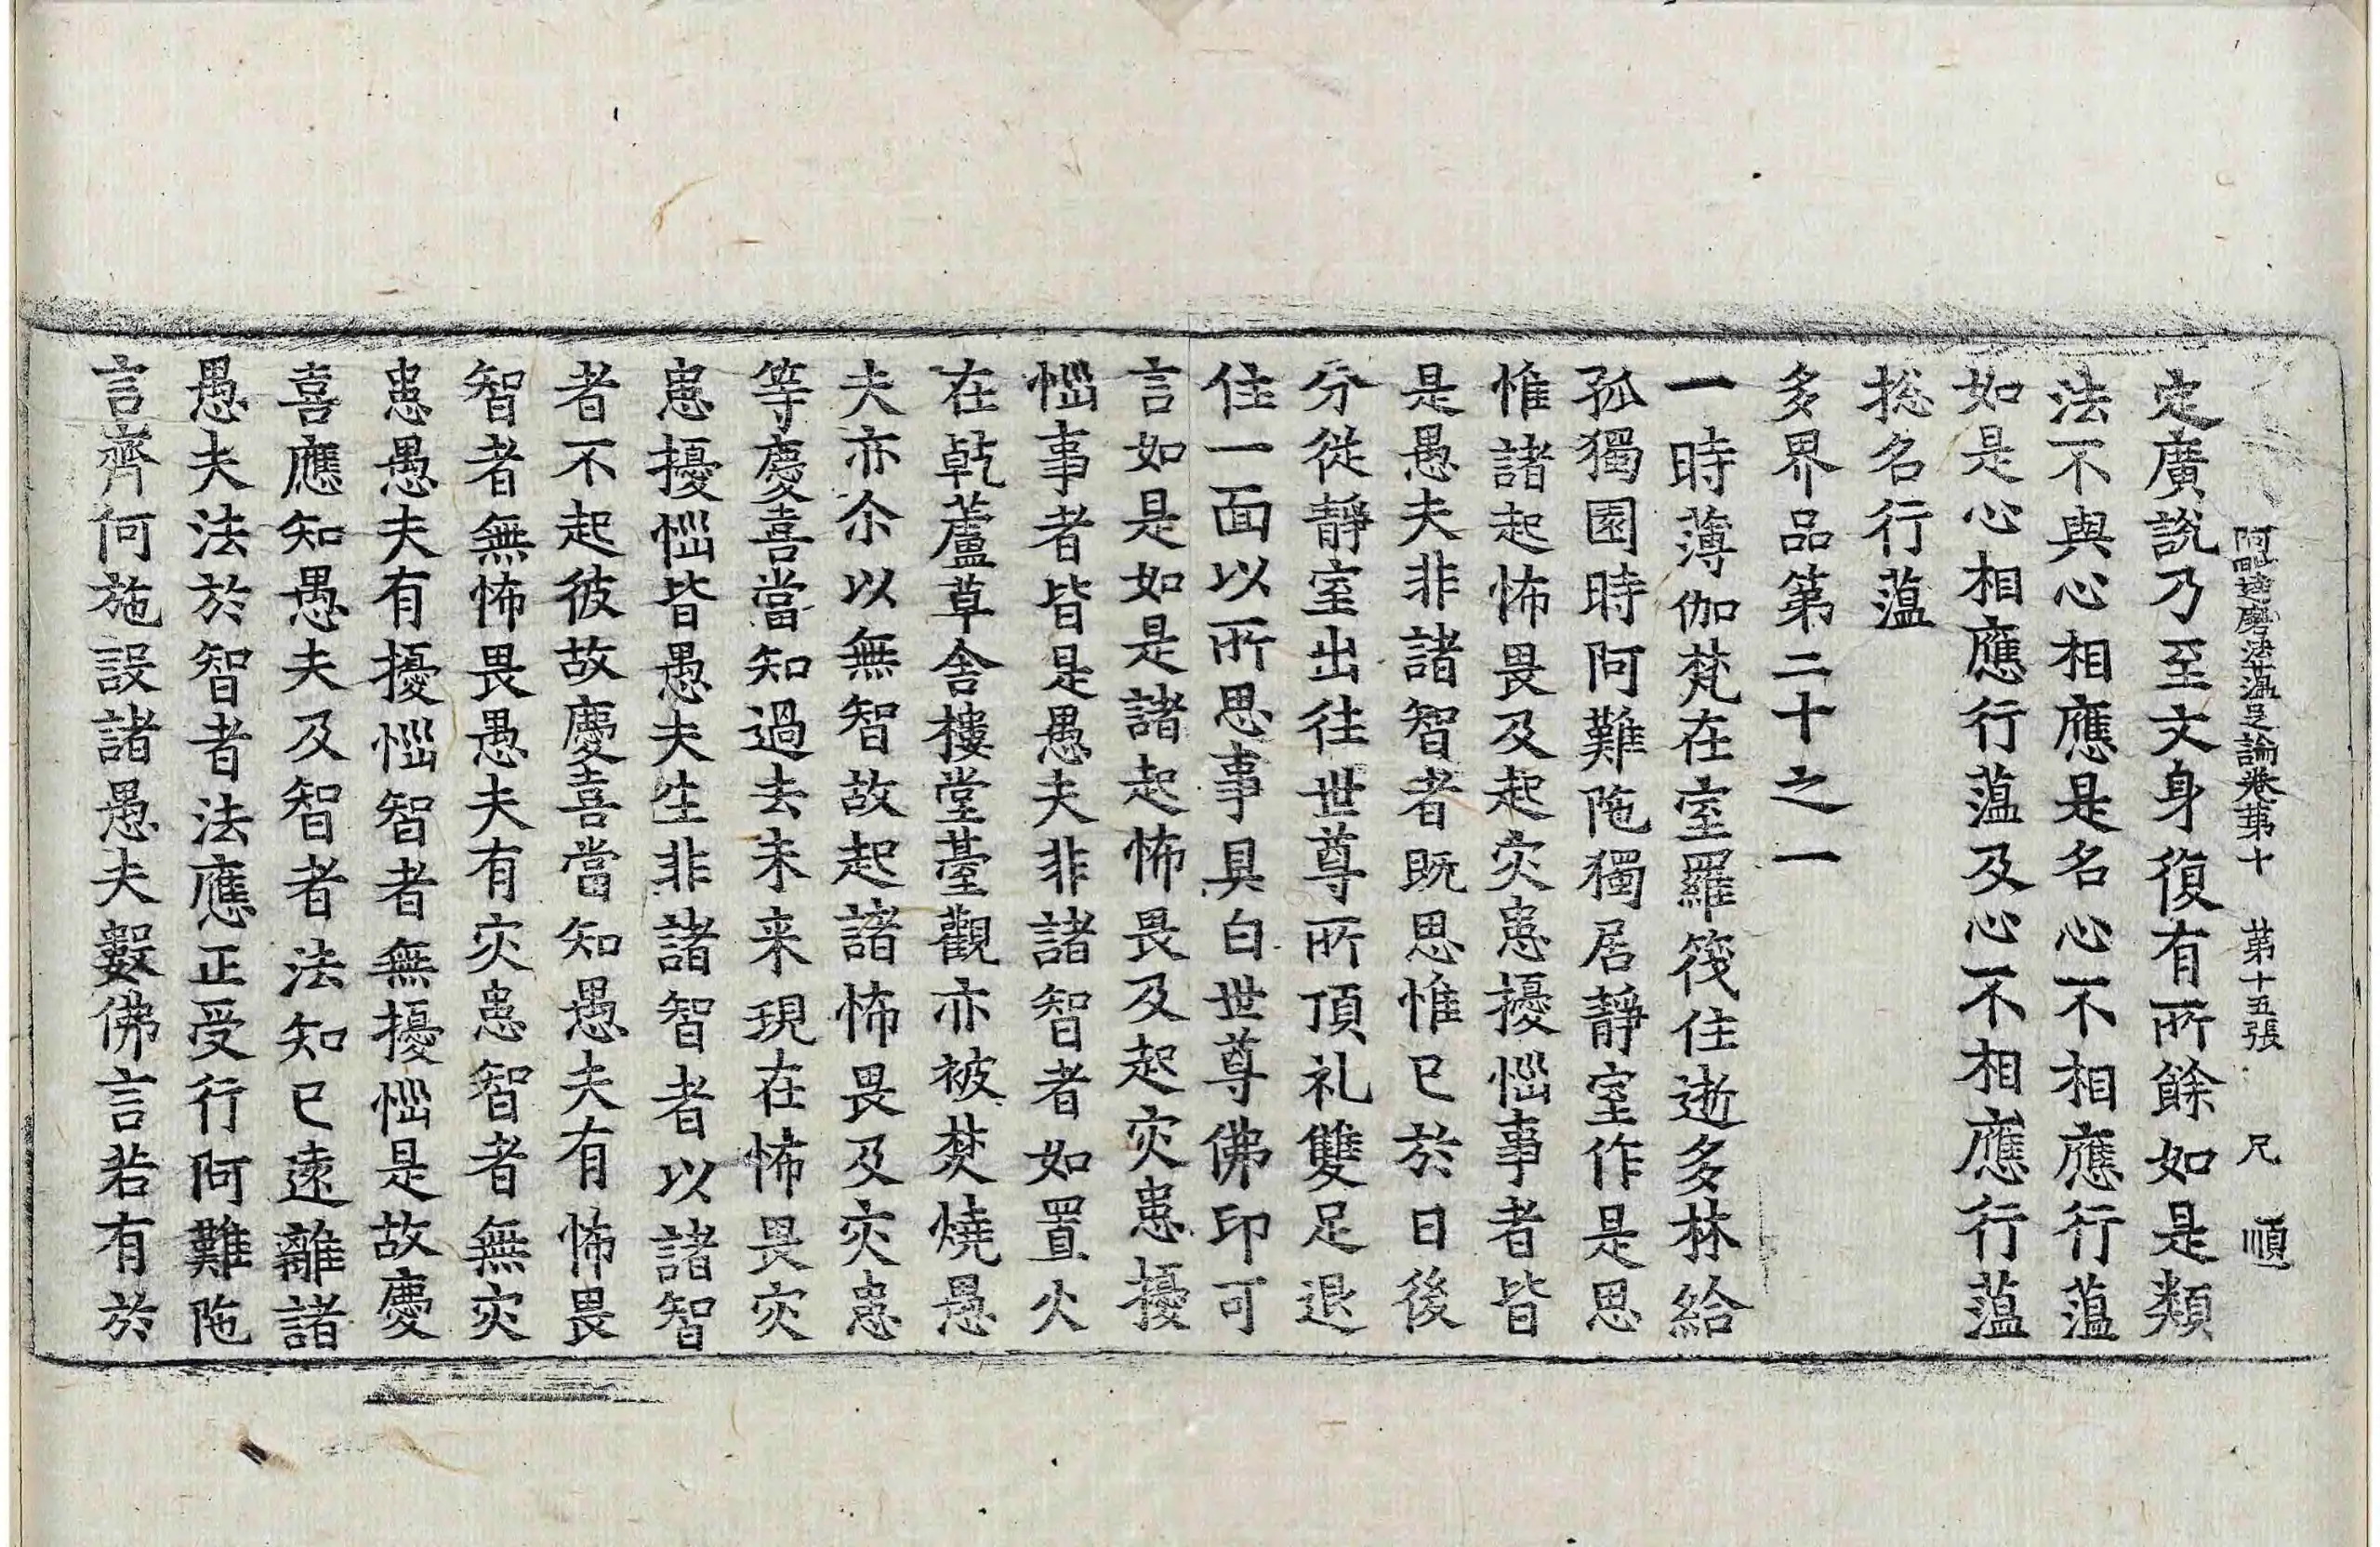 阿毗達磨法蘊足論卷苐十　苐十五張　兄　順
定廣說乃至文身復有所餘如是類
法不與心相應是名心不相應行蘊
如是心相應行蘊及心不相應行蘊
捴名行蘊
多界品第二十之一
一時薄伽梵在室羅筏住逝多林給
孤獨園時阿難陁獨居靜室作是思
惟諸起怖畏及起灾患擾惱事者皆
是愚夫非諸智者既思惟已於日後
分從靜室出往世尊所頂礼雙足退
住一面以所思事具白世尊佛印可
言如是如是諸起怖畏及起灾患擾
惱事者皆是愚夫非諸智者如置火
在乾蘆草舍樓堂臺觀亦被焚燒愚
夫亦尒以無智故起諸怖畏及灾患
等慶喜當知過去未来現在怖畏灾
患擾惱皆愚夫生非諸智者以諸智
者不起彼故慶喜當知愚夫有怖畏
智者無怖畏愚夫有灾患智者無灾
患愚夫有擾惱智者無擾惱是故慶
喜應知愚夫及智者法知已遠離諸
愚夫法於智者法應正受行阿難陁
言齊何施設諸愚夫數佛言若有於